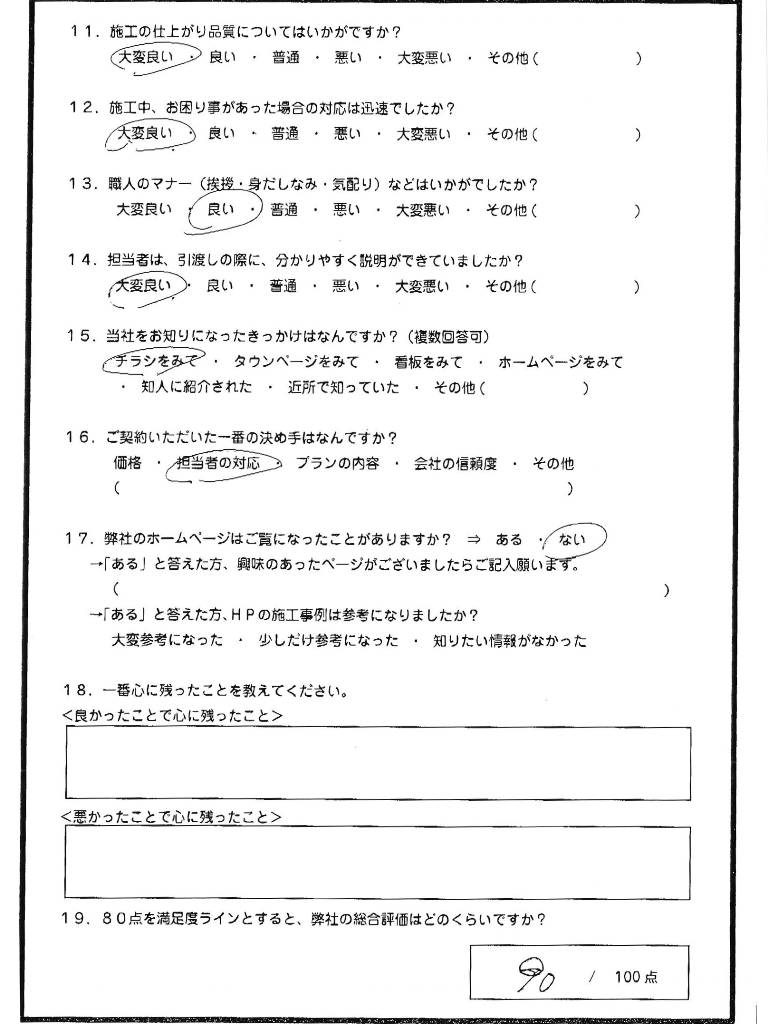 11．施工の仕上がり品質についてはいかがですか？
大変良い ・ 良い ・ 普通 ・ 悪い ・ 大変悪い ・ その他（　　　　　　）
12．施工中、お困り事があった場合の対応は迅速でしたか？
大変良い ・ 良い ・ 普通 ・ 悪い ・ 大変悪い ・ その他（　　　　　　）
13．職人のマナー（挨拶・身だしなみ・気配り）などはいかがでしたか？
大変良い ・ 良い ・ 普通 ・ 悪い ・ 大変悪い ・ その他（　　　　　　）
14．担当者は、引渡しの際に、分かりやすく説明ができていましたか？
大変良い ・ 良い ・ 普通 ・ 悪い ・ 大変悪い ・ その他（　　　　　　）
15．当社をお知りになったきっかけはなんですか？（複数回答可）
チラシをみて ・ タウンページをみて ・ 看板をみて ・ ホームページをみて
・ 知人に紹介された ・ 近所で知っていた ・ その他（　　　　　　）
16．ご契約いただいた一番の決め手はなんですか？
価格 ・ 担当者の対応 ・ プランの内容 ・ 会社の信頼度 ・ その他
（　　　　　　）
17．弊社のホームページはご覧になったことがありますか？ ⇒ ある ・ ない
→「ある」と答えた方、興味のあったページがございましたらご記入願います。
（　　　　　　）
→「ある」と答えた方、HPの施工事例は参考になりましたか？
大変参考になった ・ 少しだけ参考になった ・ 知りたい情報がなかった
18．一番心に残ったことを教えてください。
＜良かったことで心に残ったこと＞
＜悪かったことで心に残ったこと＞
19．80点を満足度ラインとすると、弊社の総合評価はどのくらいですか？
90 / 100点